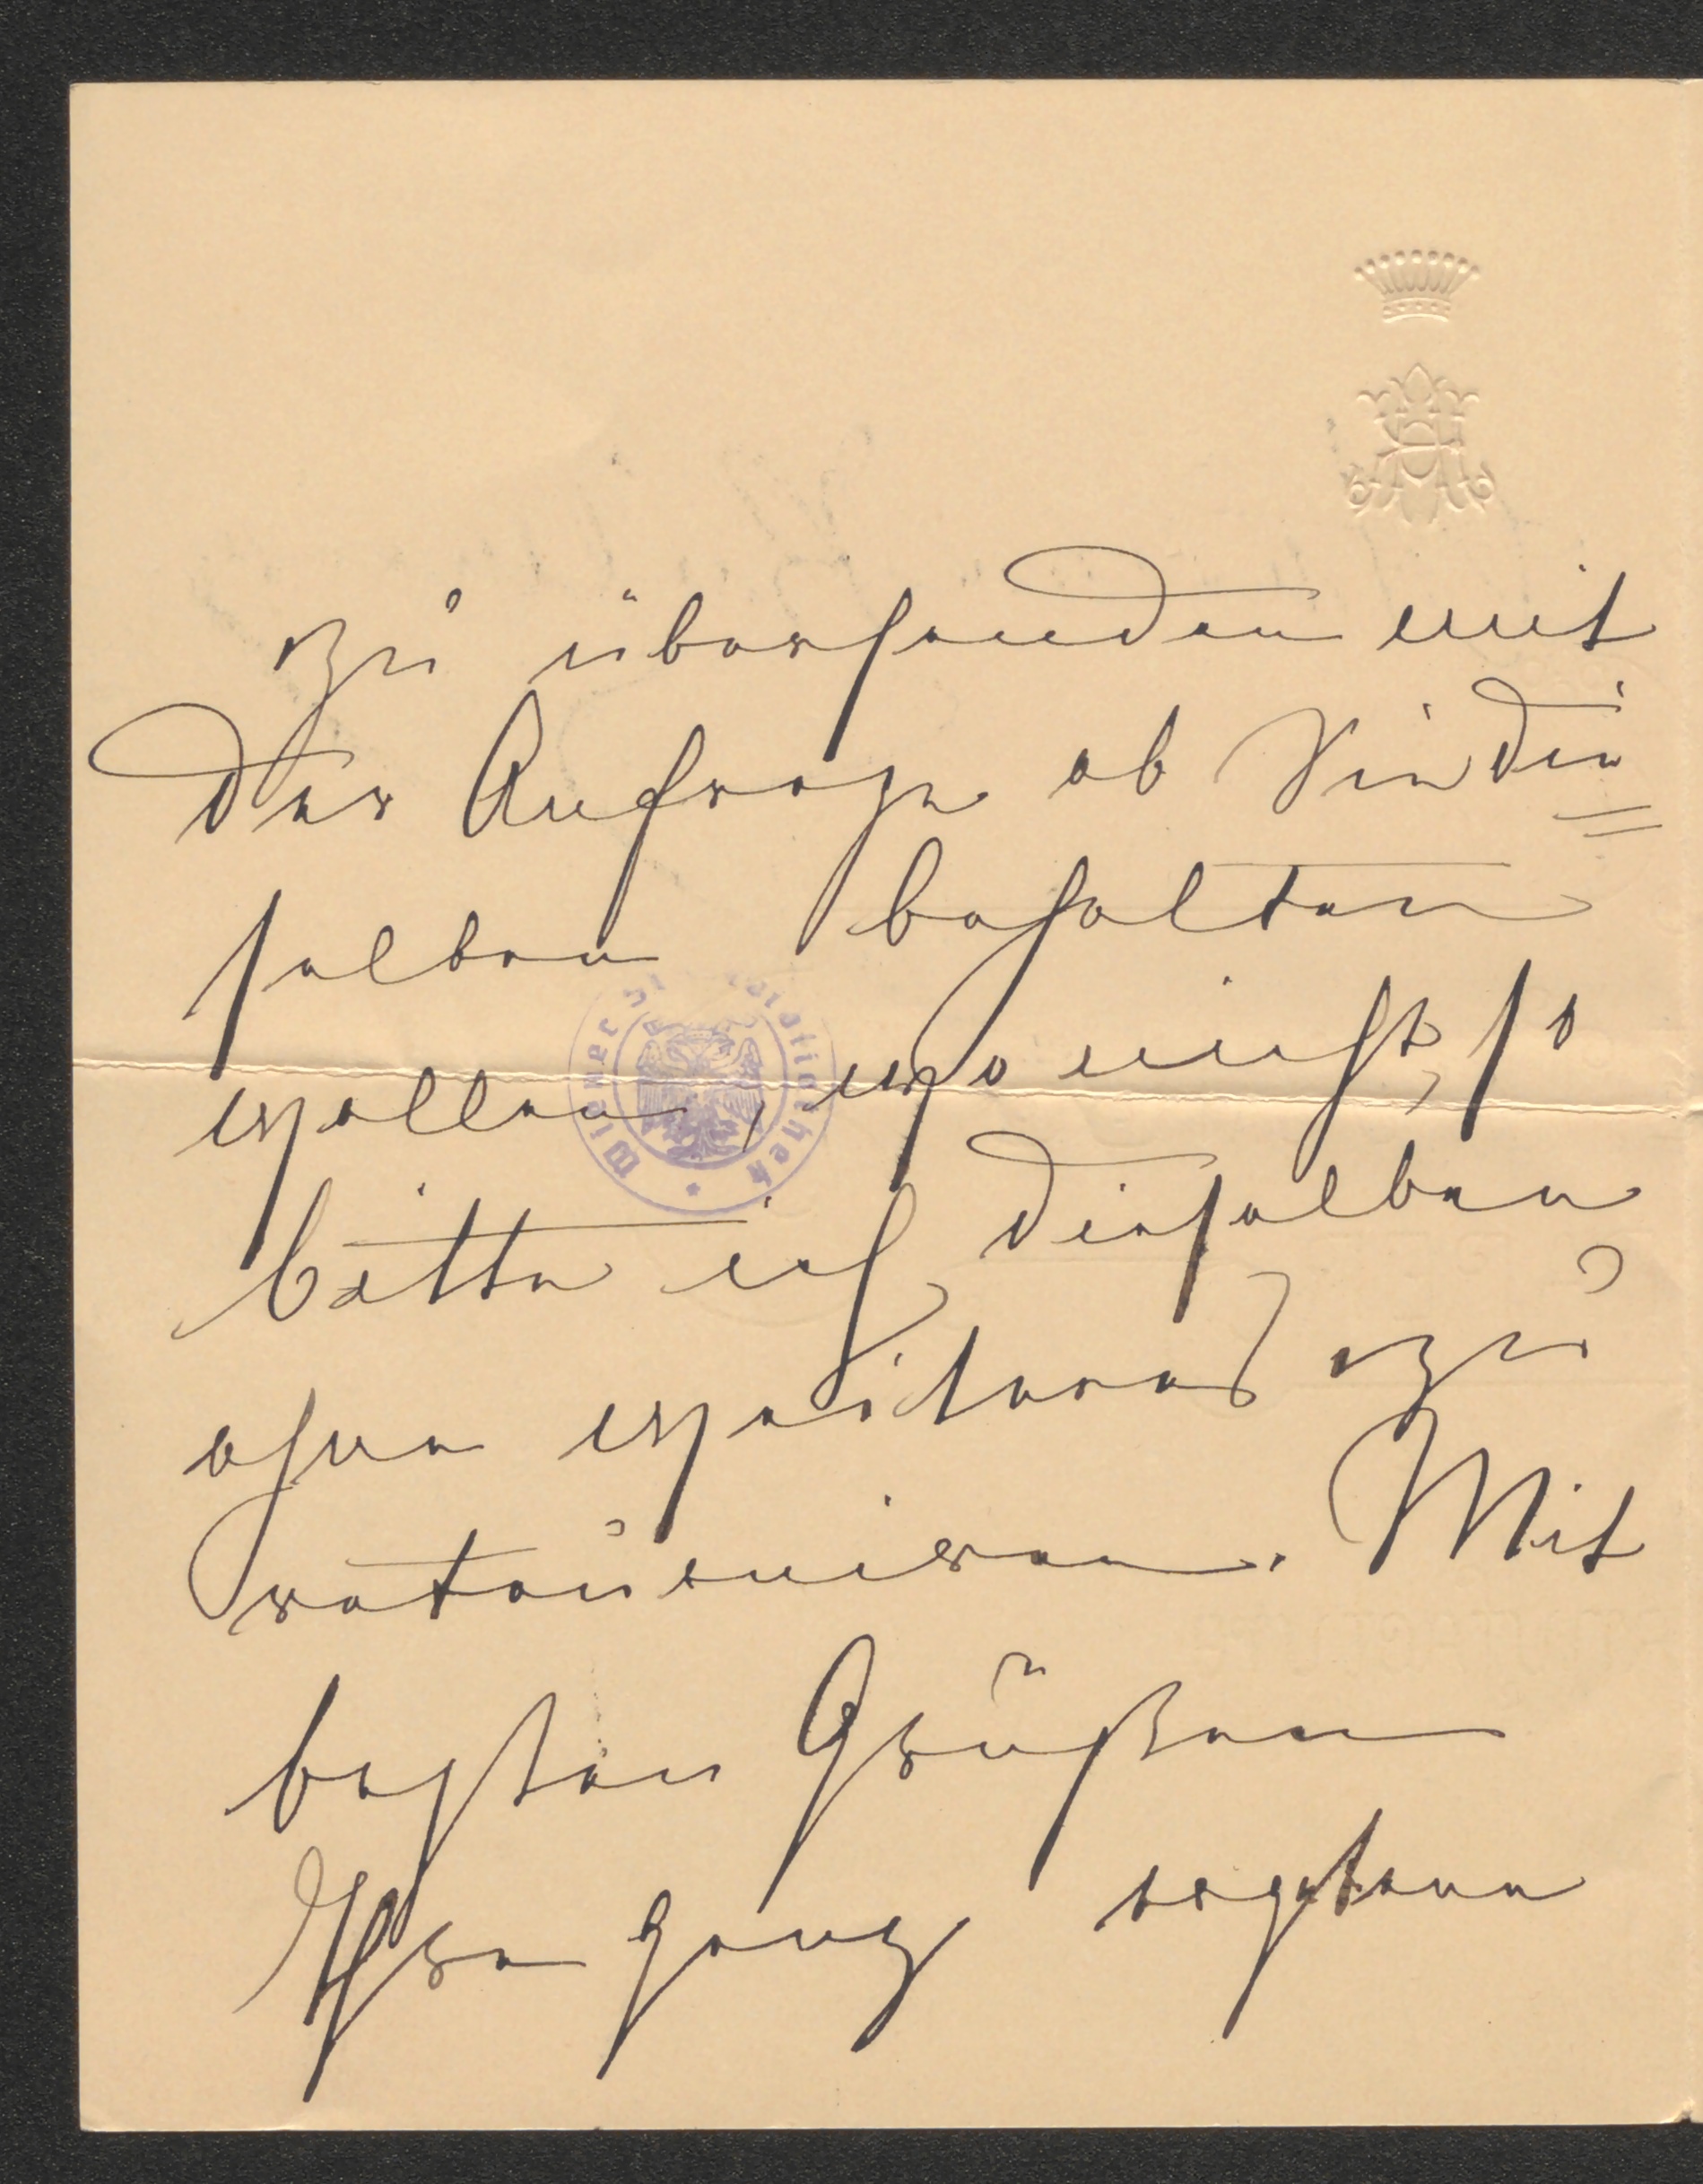 zu übersenden mit
der Anfrage ob Sie die=
selben behalten
wollen, wo nicht, so
bitte ich dieselben
ohne weiteres zu
retournieren. Mit
besten Grüßen
Ihre ganz ergebene